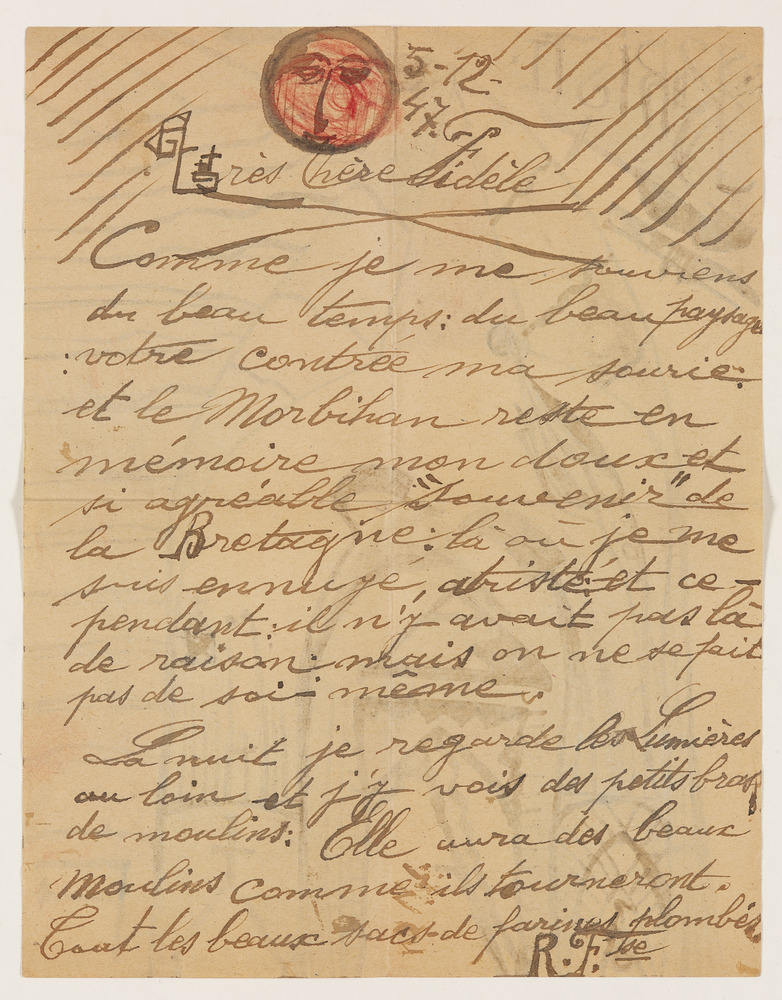 5-12-
47.
Très Chère Fidèle
Comme je me souviens
du beau temps: du beau paysage
: votre contrée ma sourie:
et le Morbihan reste en
mémoire mon doux et
si agréable "Souvenir" de
la Bretagne: là où je me
suis ennuyé, atristé et ce-
pendant: il n'y avait pas là
de raison: mais on ne se fait
pas de soi-même.
La nuit je regarde les Lumières
au loin et j'y vois des petits bras
de moulins: Elle aura des beaux
Moulins comme ils tourneront.
Tout les beaux sacs de farines plombés
R.F. se